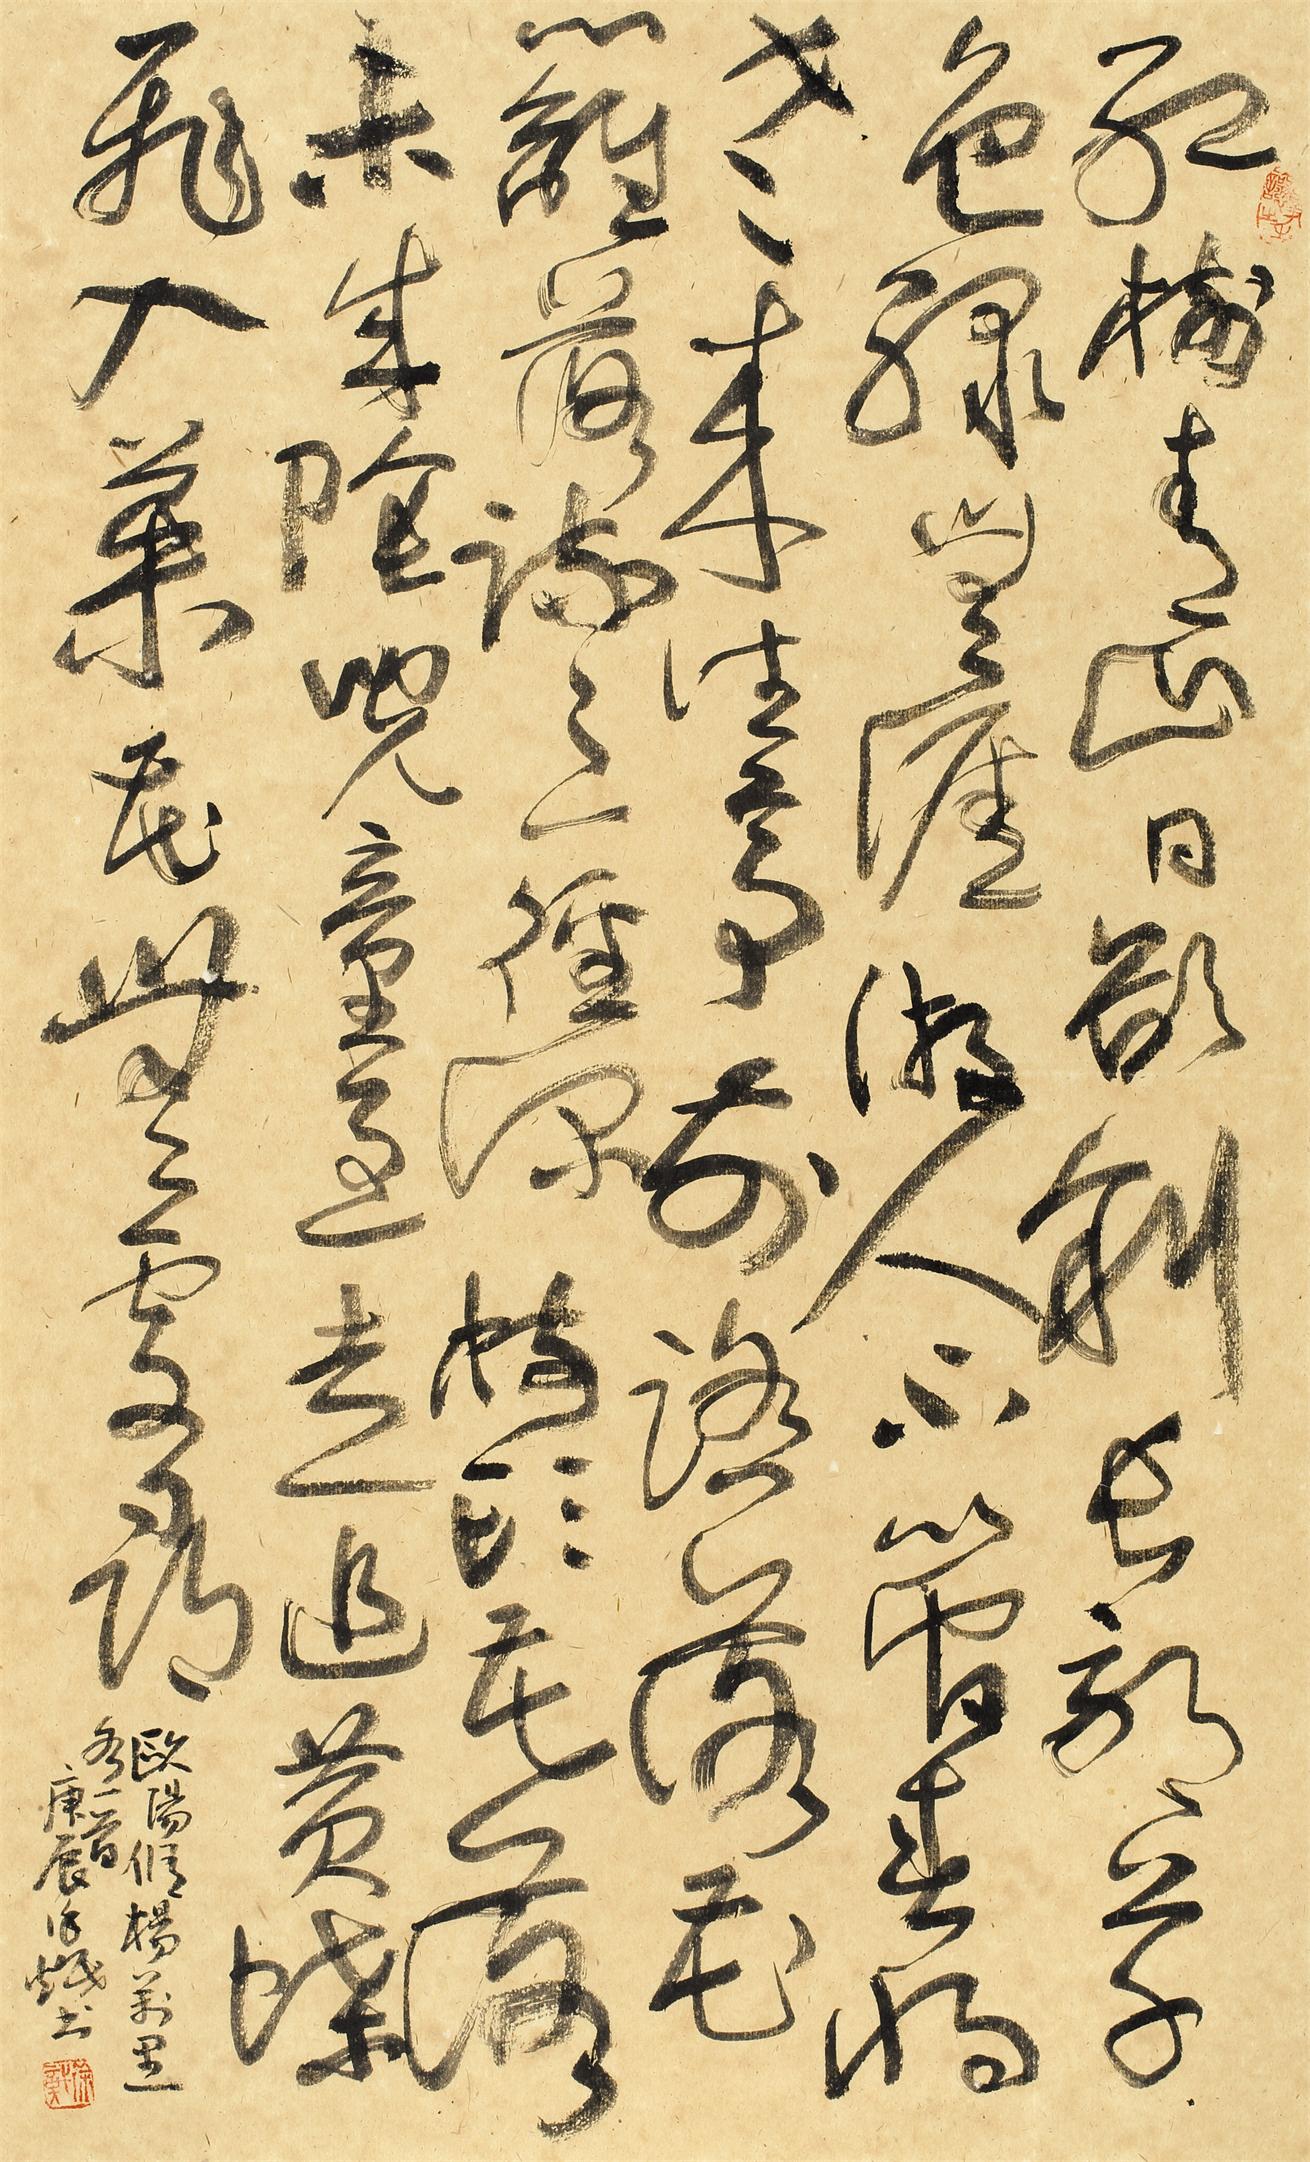 紅樹青山日欲斜長郊草
色緑無涯遊人不管春將
老來往亭前踏落花
籬落疎〻一徑深樹頭花落
未成陰兒童急走追黄蝶
飛入菜花無處尋
歐陽修楊萬里
各一首
庚辰徐書